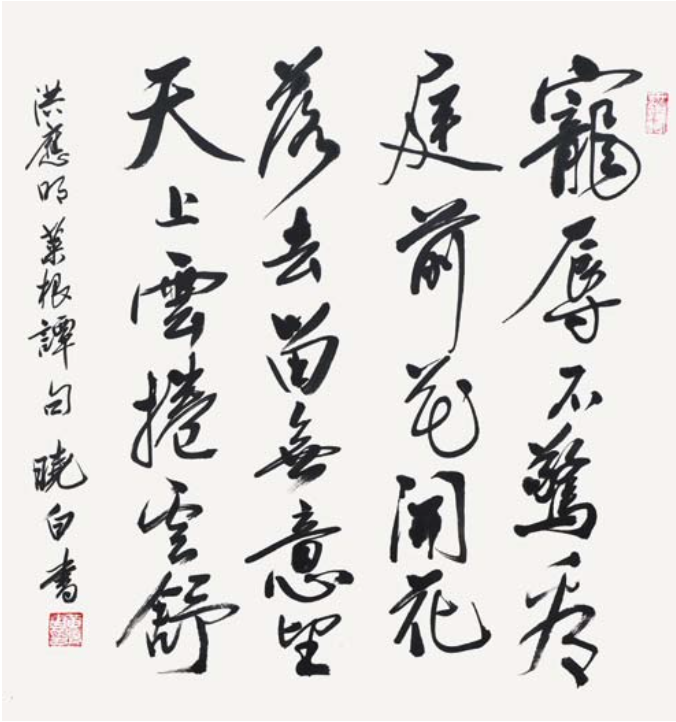 寵辱不驚看
庭前花開花
落去留無意望
天上雲捲雲舒
洪應明菜根譚句 曉白書